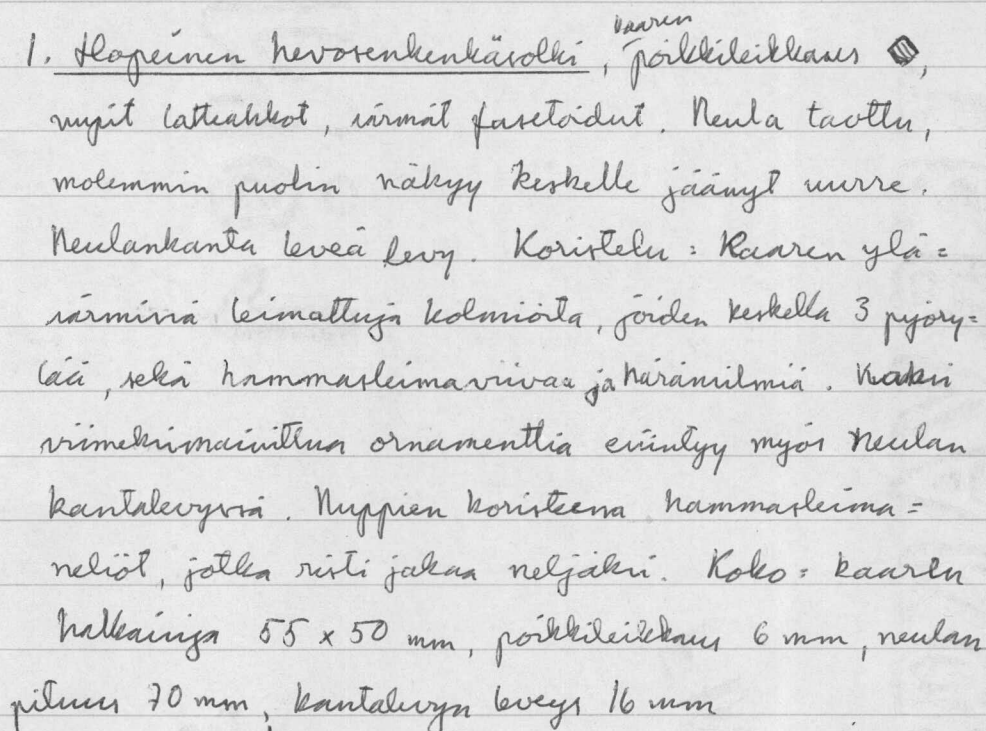 1. Hopeinen hevosenkenkäsolki, kaaren poikkileikkaus ,
nupit latteahkot, särmät fasetoidut. Neula taottu,
molemmin puolin näkyy keskelle jäänyt uurre.
Neulankanta leveä levy. Koristelu: Kaaren ylä=
särmissä leimattuja kolmioita, joiden keskellä 3 pyöry=
lää, sekä hammasleimaviivaa ja häränsilmiä. Kaksi
viimeksimainittua ornamenttia esiintyy myös neulan
kantalevyssä. Nuppien koristeena hammasleima=
neliöt, jotka risti jakaa neljäksi. Koko: kaaren
halkaisija 55 x 50 mm, poikkileikkaus 6 mm, neulan
pituus 70 mm, kantalevyn leveys 16 mm